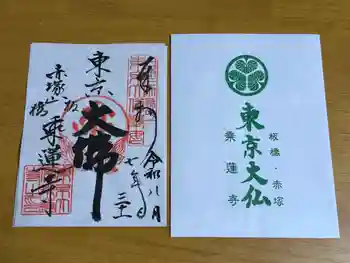 奉拝
東京
大佛
赤塚山
板橋
乗蓮寺
令和八月
七年
三十一日
東京大仏
板橋・赤塚
乗蓮寺